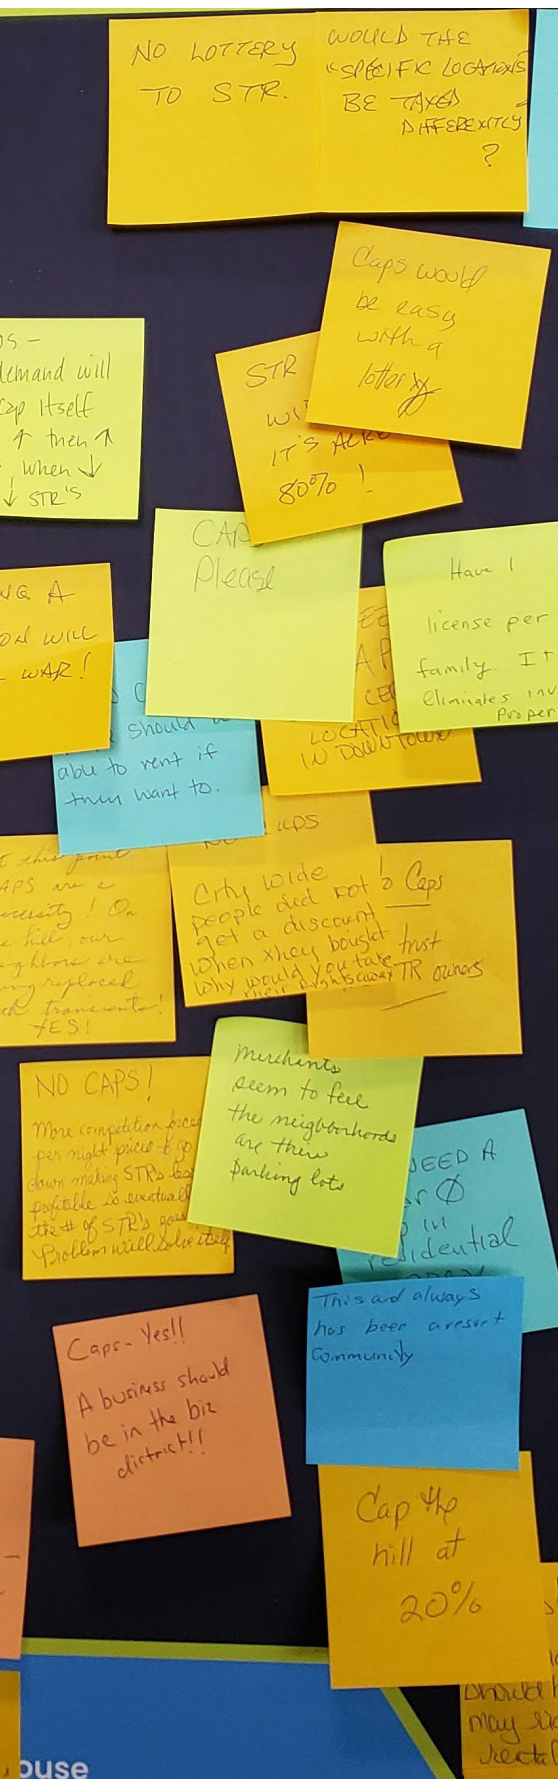 NO LOTTERY
TO STR.
WOULD THE
"SPECIFIC LOCATIONS"
BE TAXED
DIFFERENTLY
?
Caps would
be easy
with a
lottery
STR
IT'S
80% !
demand will
cap itself
↑ then ↑
, when ↓
↓ STR'S
CAPS
Please
Have 1
license per
family. It
eliminates
A
WILL
WAR!
should
able to rent if
they want to.
LOCATIO
IN DOWNTOWN
this point
CAPS are a
necessity! On
hill, our
neighbors are
being replaced
with transients!
YES!
City wide
people did not
get a discount
when they bought
why would you take
their rights away
!
Caps
trust
STR owners
NO CAPS!
More competition forces
per night prices to go
down making STRs less
profitable so eventually
the # of STR's goes
Problem will solve itself
Merchants
seem to feel
the neighborhoods
are their
parking lots
NEED A
or 0
in
residential
This and always
has been a resort
Community
Caps - Yes!!
A business should
be in the biz
district!!
Cap the
hill at
20%
should
may
rental
ouse